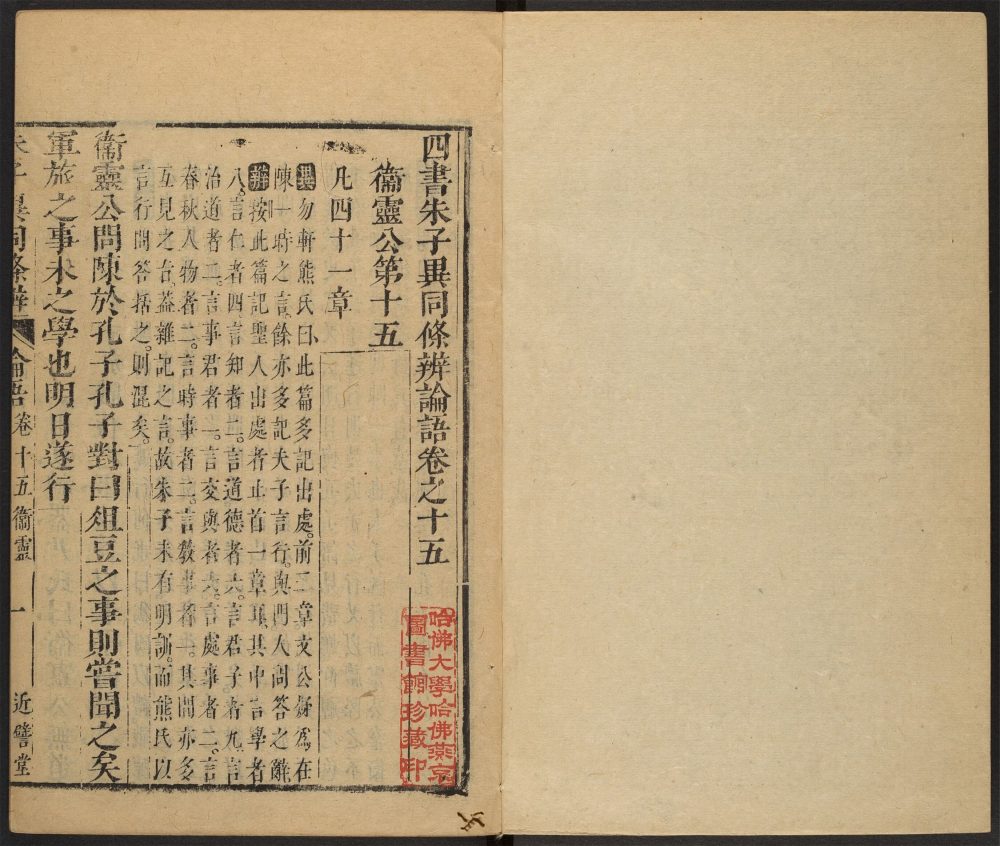 四書朱子異同條辨論語卷之十五
衞靈公第十五
凡四十一章
異勿軒熊氏曰此篇多記出處前二章文公疑爲在
陳一時之言餘亦多記夫子言行與門人問答之辭
辨按此篇記聖人出處者止首一章耳其中言學者
八言仁者四言知者二言道德者六言君子者九言
治道者二言事君者一言交與者六言處事者二言
春秋人物者二言時事者二言敎事者其間亦多
互見之言蓋雜記之言故朱子未有明訓而熊氏以
言行問答括之則混矣
衞靈公問陳於孔子孔子對曰俎豆之事則嘗聞之矣
軍旅之事未之學也明日遂行
朱子異同條辨 論語卷十五衞靈 一 近譬堂
哈佛大學哈佛燕京
圖書館珍藏印